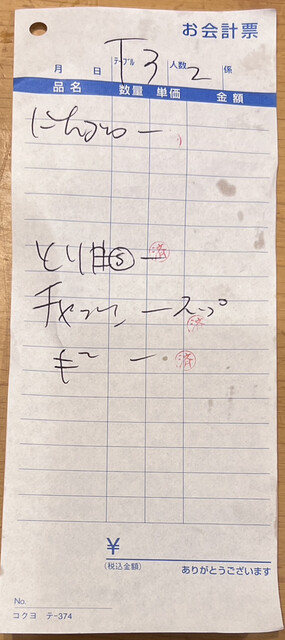 お会計票
月 日 テーブル T3 人数 2 係
品名 数量 単価 金額
とり丼Ⓢ 一 済
チャーハン 一 スープ 済
ギー 一 済
¥
(税込金額) ありがとうございます
No.
コクヨ テ-374